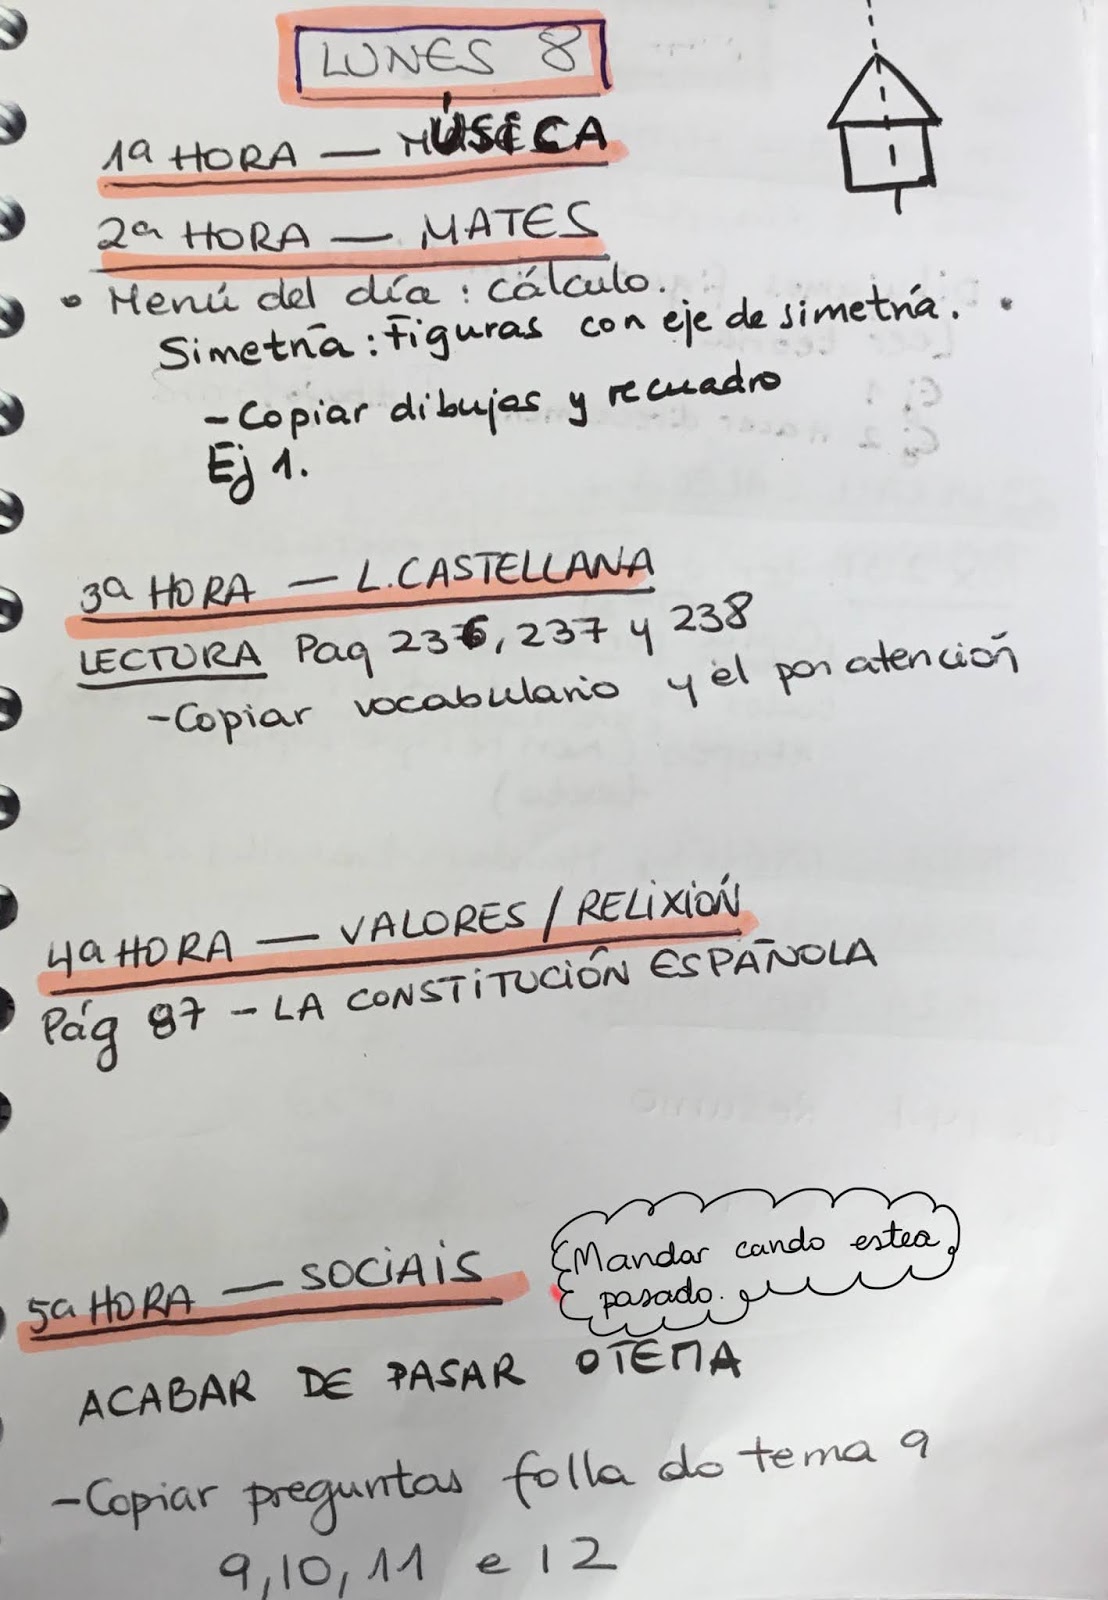 LUNES 8
1ª HORA — MÚSICA
2ª HORA — MATES
• Menú del día: cálculo.
Simetría: Figuras con eje de simetría.
- Copiar dibujas y recuadro
Ej 1.
3ª HORA — L.CASTELLANA
LECTURA Pag 236, 237 y 238
- Copiar vocabulario y el pon atención
4ª HORA — VALORES / RELIXIÓN
Pág 87 - LA CONSTITUCIÓN ESPAÑOLA
5ª HORA — SOCIAIS
Mandar cando estea
pasado.
ACABAR DE PASAR O TEMA
- Copiar preguntas folla do tema 9
9, 10, 11 e 12